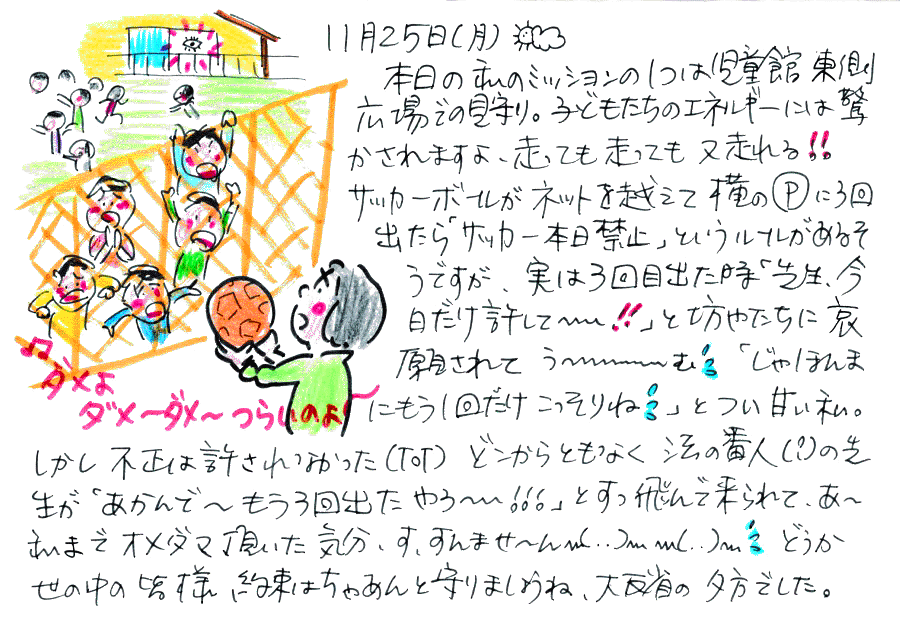 11月25日(月)
本日の私のミッションの1つは児童館 東側
広場での見守り。子どもたちのエネルギーには 驚
かされますよ、走っても 走っても 又走れる!!
サッカーボールが ネットを越えて 横の Ⓟ に3回
出たら「サッカー本日禁止」というルールがあるそ
うですが、実は3回目出た時「先生、今
日だけ許して〜〜!!」と坊やたちに 哀
願されて う〜〜〜〜む 「じゃほんま
にもう1回だけ こっそりね」とつい 甘い 私。
しかし 不正は許されなかった(ToT) どこからともなく 法の番人(!?)の先
生が「あかんで〜 もう3回出た やろ〜〜!!!」とすっ飛んで来られて、あ〜
私まで オメダマ 頂いた 気分、す、すんませ〜ん m(..)m m(..)m どうか
世の中の 皆様、約束はちゃあんと守りましょうね、大反省の 夕方でした。
ダメよ
ダメ〜ダメ〜 つらいのよ〜